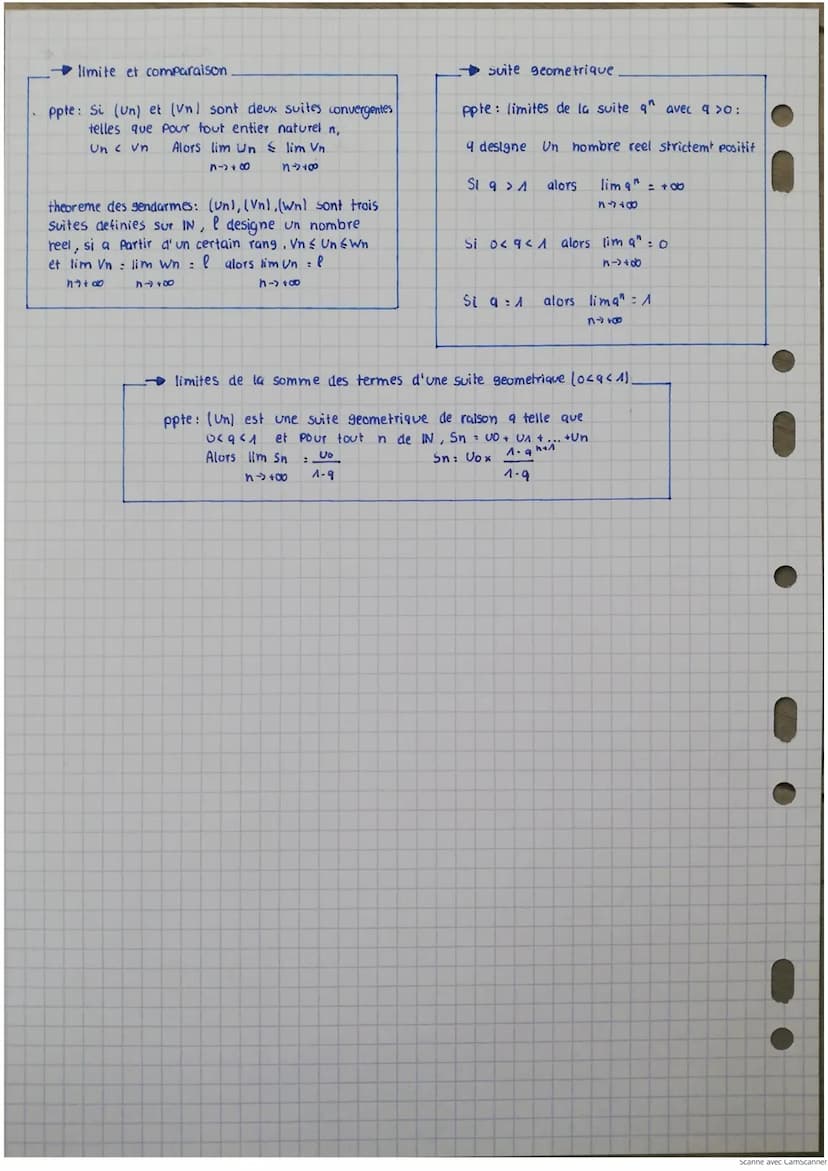 → limite et comparaison
. ppte: Si (Un) et (Vn) sont deux suites convergentes
telles que pour tout entier naturel n,
Un < Vn Alors lim Un ≤ lim Vn
n→+∞ n→+∞
theoreme des gendarmes: (Un), (Vn), (Wn) sont trois
suites definies sur IN, ℓ designe un nombre
reel, si a partir d'un certain rang, Vn ≤ Un ≤ Wn
et lim Vn = lim Wn = ℓ alors lim Un = ℓ
n→+∞ n→+∞ n→+∞
→ suite geometrique
ppte: limites de la suite qⁿ avec q >0:
q designe Un nombre reel strictemt positif
Si q > 1 alors lim qⁿ = +∞
n→+∞
Si 0< q < 1 alors lim qⁿ = 0
n→+∞
Si q = 1 alors lim qⁿ = 1
n→+∞
→ limites de la somme des termes d'une suite geometrique (0<q<1)
ppte: (Un) est une suite geometrique de raison q telle que
0<q<1 et pour tout n de IN, Sn = U0 + U1 +... +Un
Alors lim Sn = U0 / 1-q Sn = U0 × 1-qⁿ⁺¹ / 1-q
n→+∞
Scanné avec CamScanner